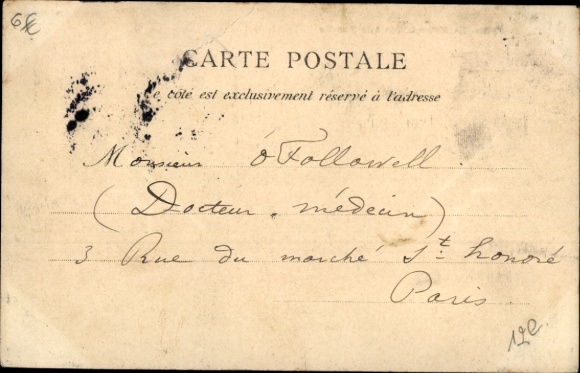 6€
CARTE POSTALE
e côté est exclusivement réservé à l'adresse
Monsieur O'Followell
(Docteur médecin)
3 Rue du marché St. honoré
Paris
12€